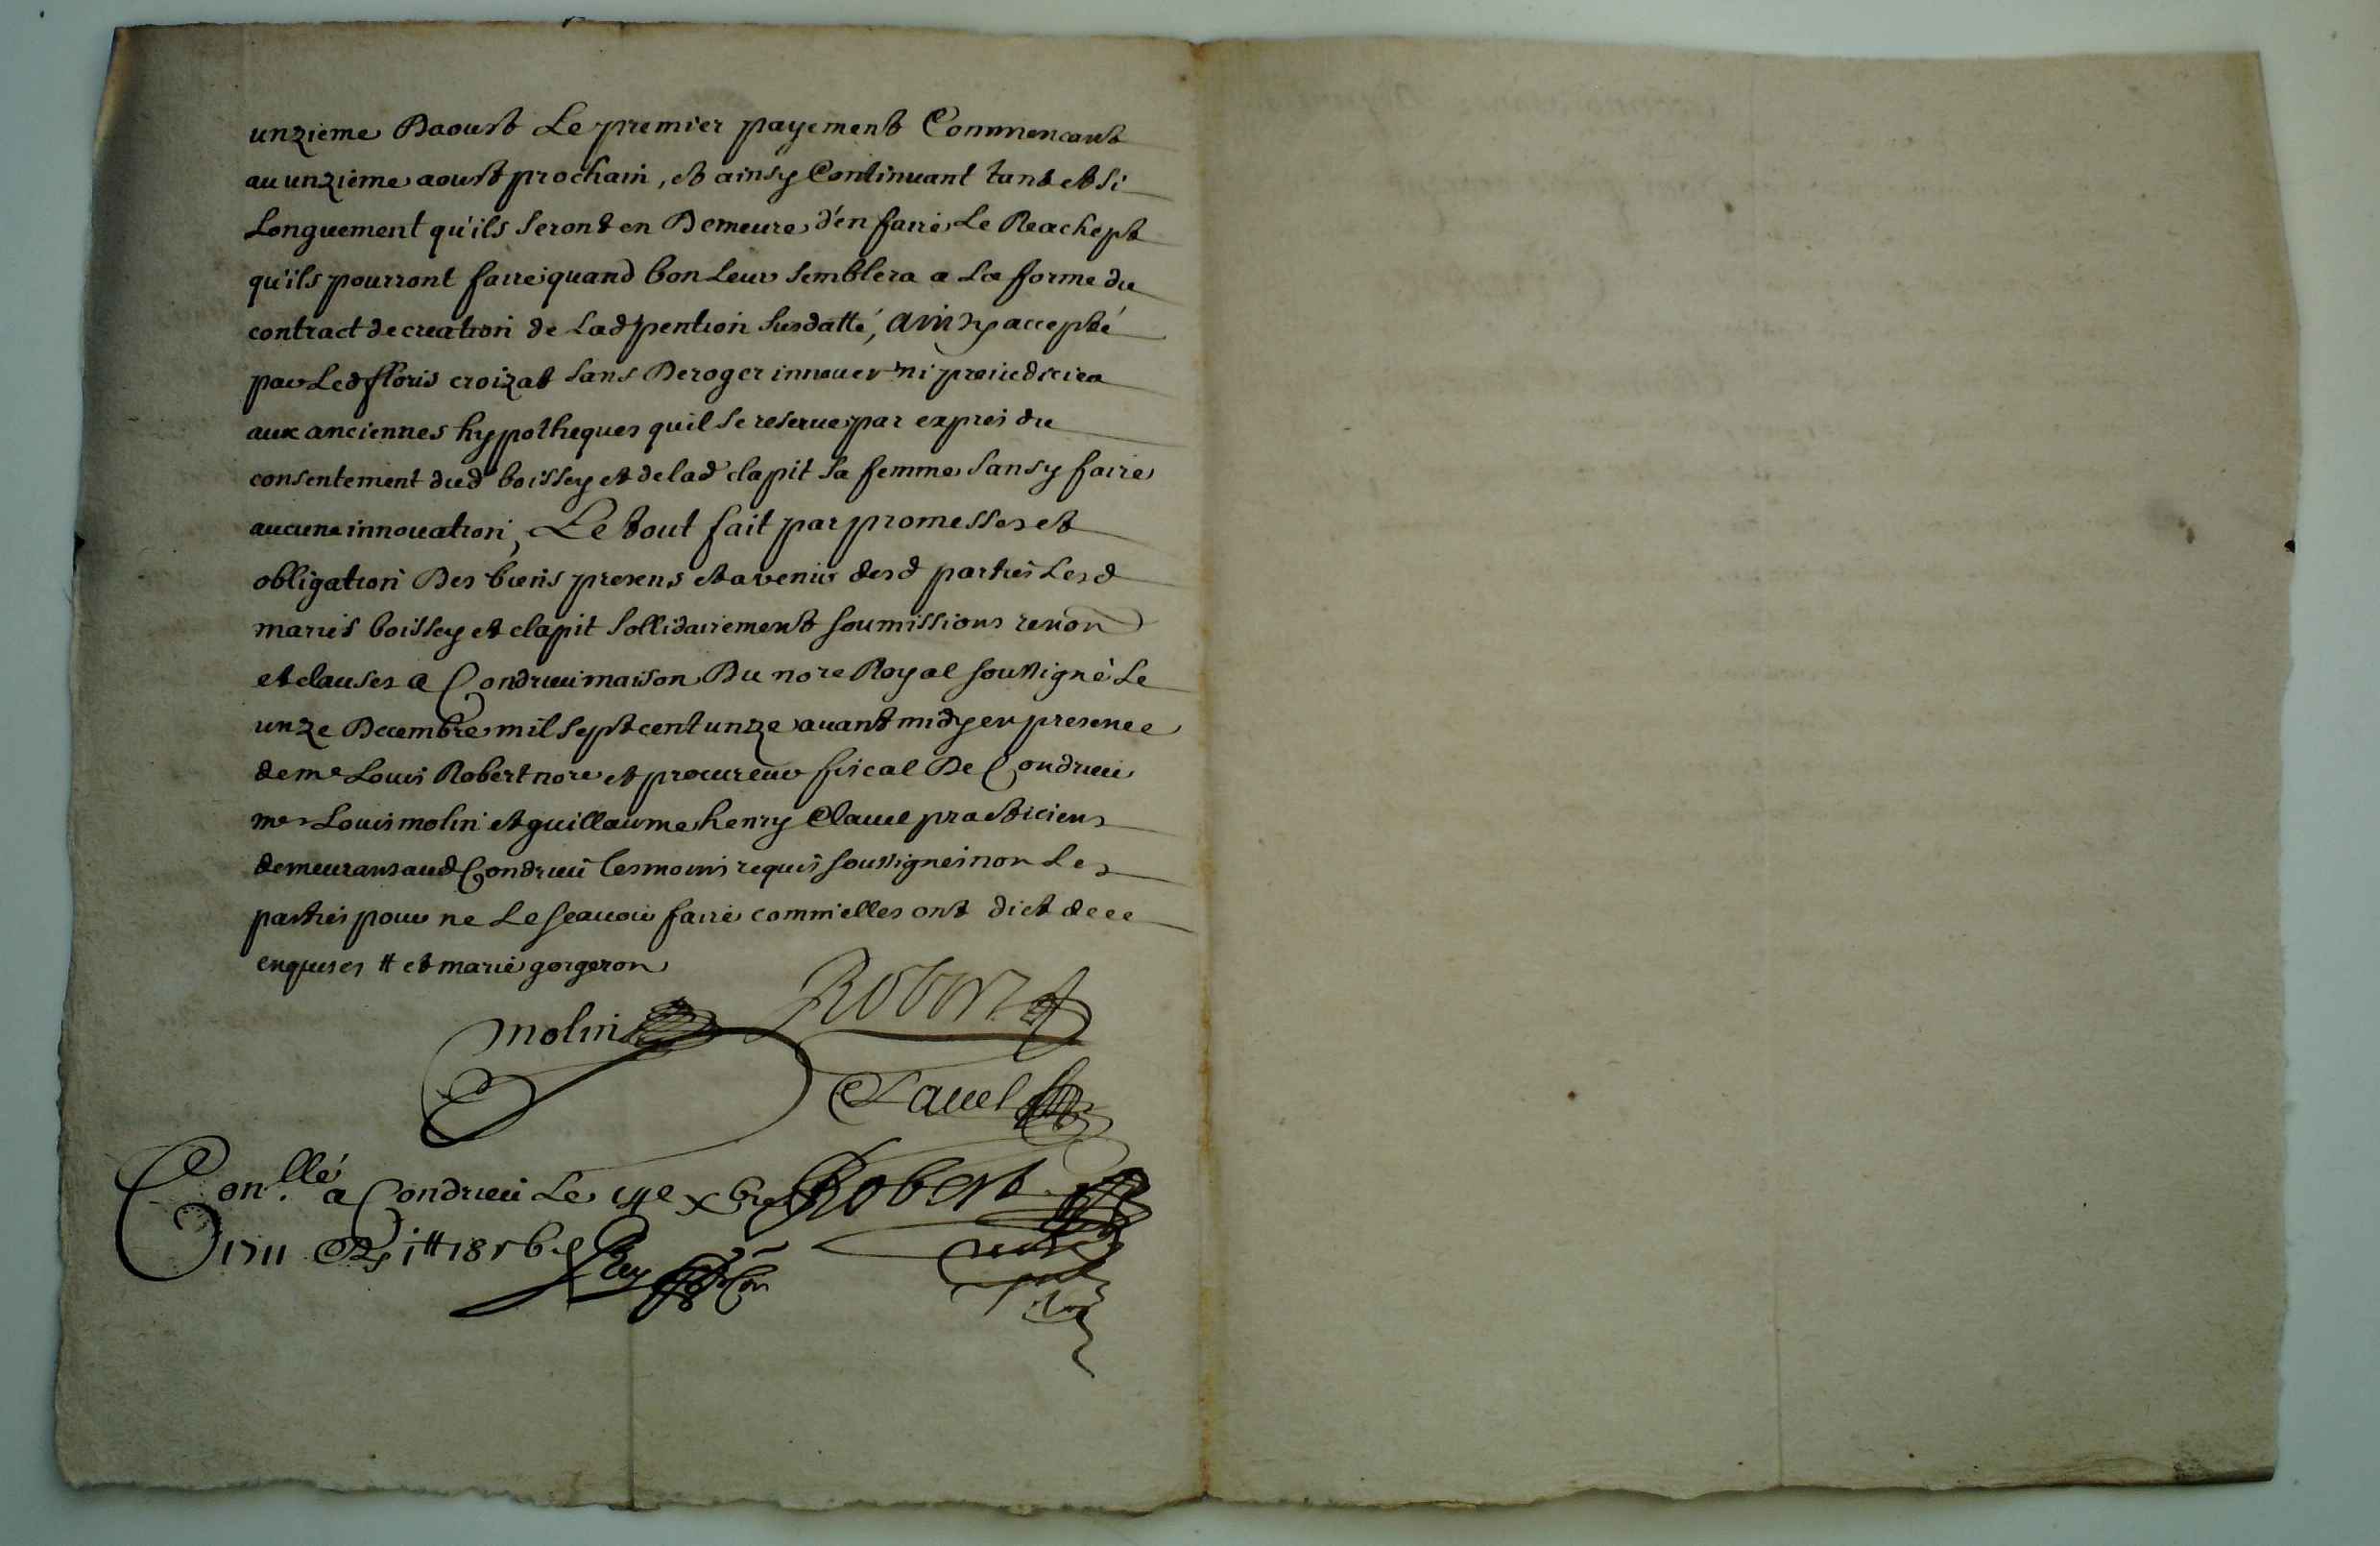 unzieme Daoust Le premier payement Commencant
au unzieme aoust prochain, et ainsy Continuant tant et si
Longuement qu'ils seront en Demeure d'en faire Le Reachept
qu'ils pourront faire quand bon Leur semblera a La forme du
contract de creation de Lad pention susdatté, ainsy accepté
par Led floris croizat sans Deroger innouer ni preiudicier
aux anciennes hypotheques quil se reserue par expres du
consentement dud boissey et de lad clapit sa femme sans y faire
aucune innouation, Le tout fait par promesses et
obligation Des biens presens et a venir desd parties Lesd
mariés boissey et clapit sollidairement soumissions renon
et clauses a Condrieu maison Du nore Royal soussigné Le
unze Decembre mil sept cent unze auant midy en presence
de me Louis Robert nore et procureur fiscal De Condrieu
mes Louis molin et guillaume henry Clauel practiciens
demeurans aud Condrieu tesmoins requis soussignes non Les
parties pour ne Le scauoir faire comm'elles ont dict de ce
enquises # et marie gorgeron
molin
Robert
Clauel
Con.llé a Condrieu Le xbre
Robert
1711